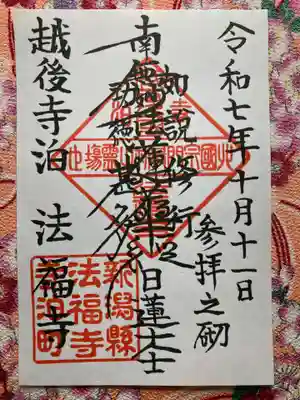 令和七年十月十一日
参拝之砌
如説修行
南無妙法蓮華経
功徳甚多
日蓮大士
越後寺泊 法福寺
新潟縣
法福寺
寺泊町